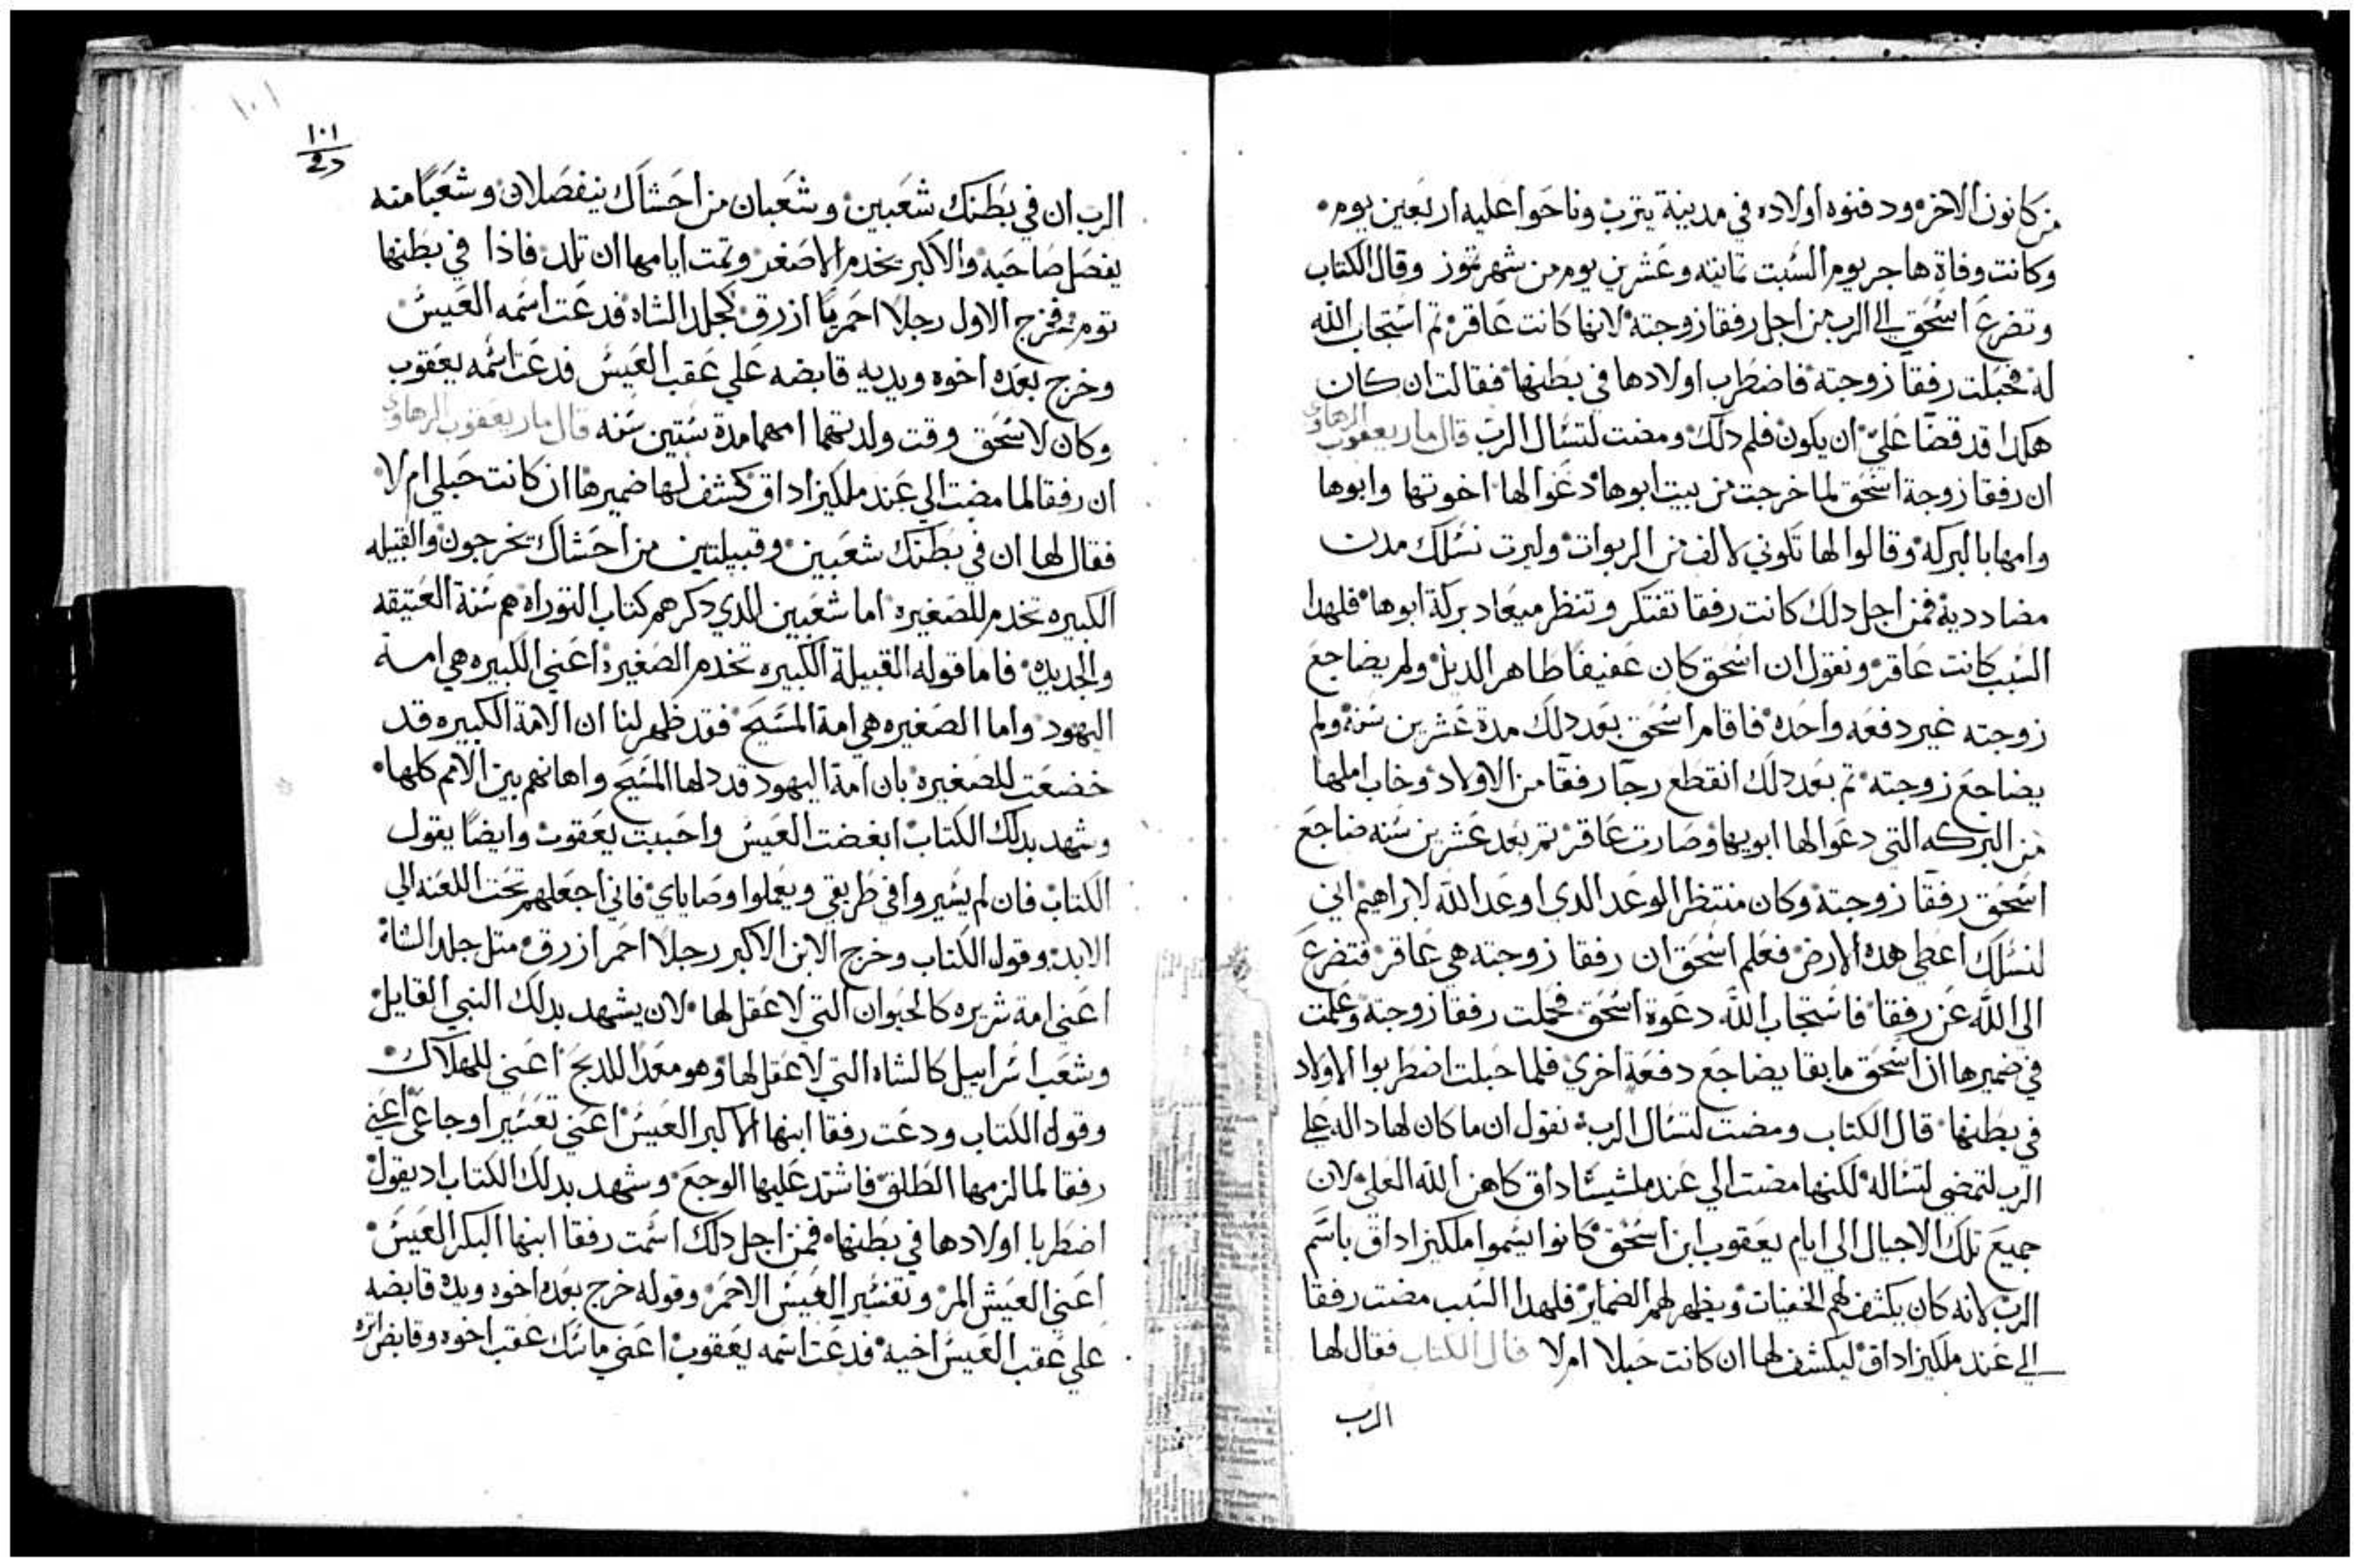 من كانون الاخر ودفنوه اولاده في مدينة يترب وناحوا عليه اربعين يوم
وكانت وفاة هاجر يوم السبت تمانيه وعشرين يوم من شهر تموز وقال الكتاب
وتضرع اسحق الى الرب من اجل رفقا زوجته لانها كانت عاقر تم استجاب الله
له فحبلت رفقا زوجته فاضطرب اولادها في بطنها فقالت ان كان
هكدا قد قضا علي ان يكون فلم دلك ومضت لتسال الرب قال مار يعقوب الرهاوي
ان رفقا زوجة اسحق لما خرجت من بيت ابوها دعوا لها اخوتها وابوها
وامها بالبركه وقالوا لها تكوني لالف من الربوات وليرت نسلك مدن
مضادديه فمن اجل دلك كانت رفقا تفتكر وتنظر ميعاد بركة ابوها فلهدا
السبب كانت عاقر ونقول ان اسحق كان عفيفا طاهر الديل ولم يضاجع
زوجته غير دفعه واحده فاقام اسحق بعد دلك مدة عشرين سنه ولم
يضاجع زوجته تم بعد دلك انقطع رجا رفقا من الاولاد وخاب املها
من البركه التي دعوا لها ابويها وصارت عاقر تم بعد عشرين سنه ضاجع
اسحق رفقا زوجته وكان منتظر الوعد الدي اوعد الله لابراهيم اني
لنسلك اعطي هده الارض فعلم اسحق ان رفقا زوجته هي عاقر فتضرع
الى الله عن رفقا فاستجاب الله دعوة اسحق فحملت رفقا زوجته وعلمت
في ضميرها ان اسحق ما بقا يضاجع دفعة اخري فلما حبلت اضطربوا الاولاد
في بطنها قال الكتاب ومضت لتسال الرب نقول ان ما كان لها داله علي
الرب لتمضي لتساله لكنها مضت الي عند ملشيساداق كاهن الله العلي لان
جميع تلك الاجيال الي ايام يعقوب ابن اسحق كانوا يسموا ملكيزاداق باسم
الرب لانه كان يكشف لهم الخفيات ويظهر لهم الضماير فلهدا السبب مضت رفقا
الى عند ملكيزاداق ليكشف لها ان كانت حبلا ام لا قال الكتاب فقال لها
الرب
١٠١
١٠١
الرب ان في بطنك شعبين وشعبان من احشاك ينفصلان وشعبا منه
يفصل صاحبه والاكبر يخدم الاصغر وتمت ايامها ان تلد فادا في بطنها
توم فخرج الاول رجلا احمريا ازرق كجلد الشاه فدعت اسمه العيس
وخرج بعده اخوه ويديه قابضه علي عقب العيس فدعت اسمه يعقوب
وكان لاسحق وقت ولدتهما امهما مدة ستين سنه قال مار يعقوب الرهاوي
ان رفقا لما مضت الي عند ملكيزاداق كشف لها ضميرها ان كانت حبلي ام لا
فقال لها ان في بطنك شعبين وقبيلتين من احشاك تخرجون والقبيله
الكبيره تخدم للصغيره اما شعبين الدي دكرهم كتاب التوراه هم سنة العتيقه
والجديده فاما قوله القبيلة الكبيره تخدم الصغيره اعني الكبيره هي امة
اليهود واما الصغيره هي امة المسيح فقد ظهر لنا ان الامة الكبيره قد
خضعت للصغيره بان امة اليهود قد دلها المسيح واهانهم بين الامم كلها
وشهد بدلك الكتاب ابغضت العيس واحببت يعقوب وايضا يقول
الكتاب فان لم يسيروا في طريقي ويعملوا وصاياي فاني اجعلهم تحت اللعنه الي
الابد وقول الكتاب وخرج الابن الاكبر رجلا احمر ازرق متل جلد الشاة
اعني امة شريره كالحيوان التي لا عقل لها لان يشهد بدلك النبي القايل
وشعب اسراييل كالشاه التي لا عقل لها وهو معدا للدبح اعني للهلاك
وقول الكتاب ودعت رفقا ابنها الاكبر العيس اعني تعسير اوجاع اعني
رفقا لما لزمها الطلق فاشتد عليها الوجع وشهد بدلك الكتاب اد يقول
اضطربا اولادها في بطنها فمن اجل دلك اسمت رفقا ابنها البكر العيس
اعني العيش المر وتفسير العيس الاحمر وقوله خرج بعده اخوه ويده قابضه
علي عقب العيس اخيه فدعت اسمه يعقوب اعني ماسك عقب اخوه وقابض اتره